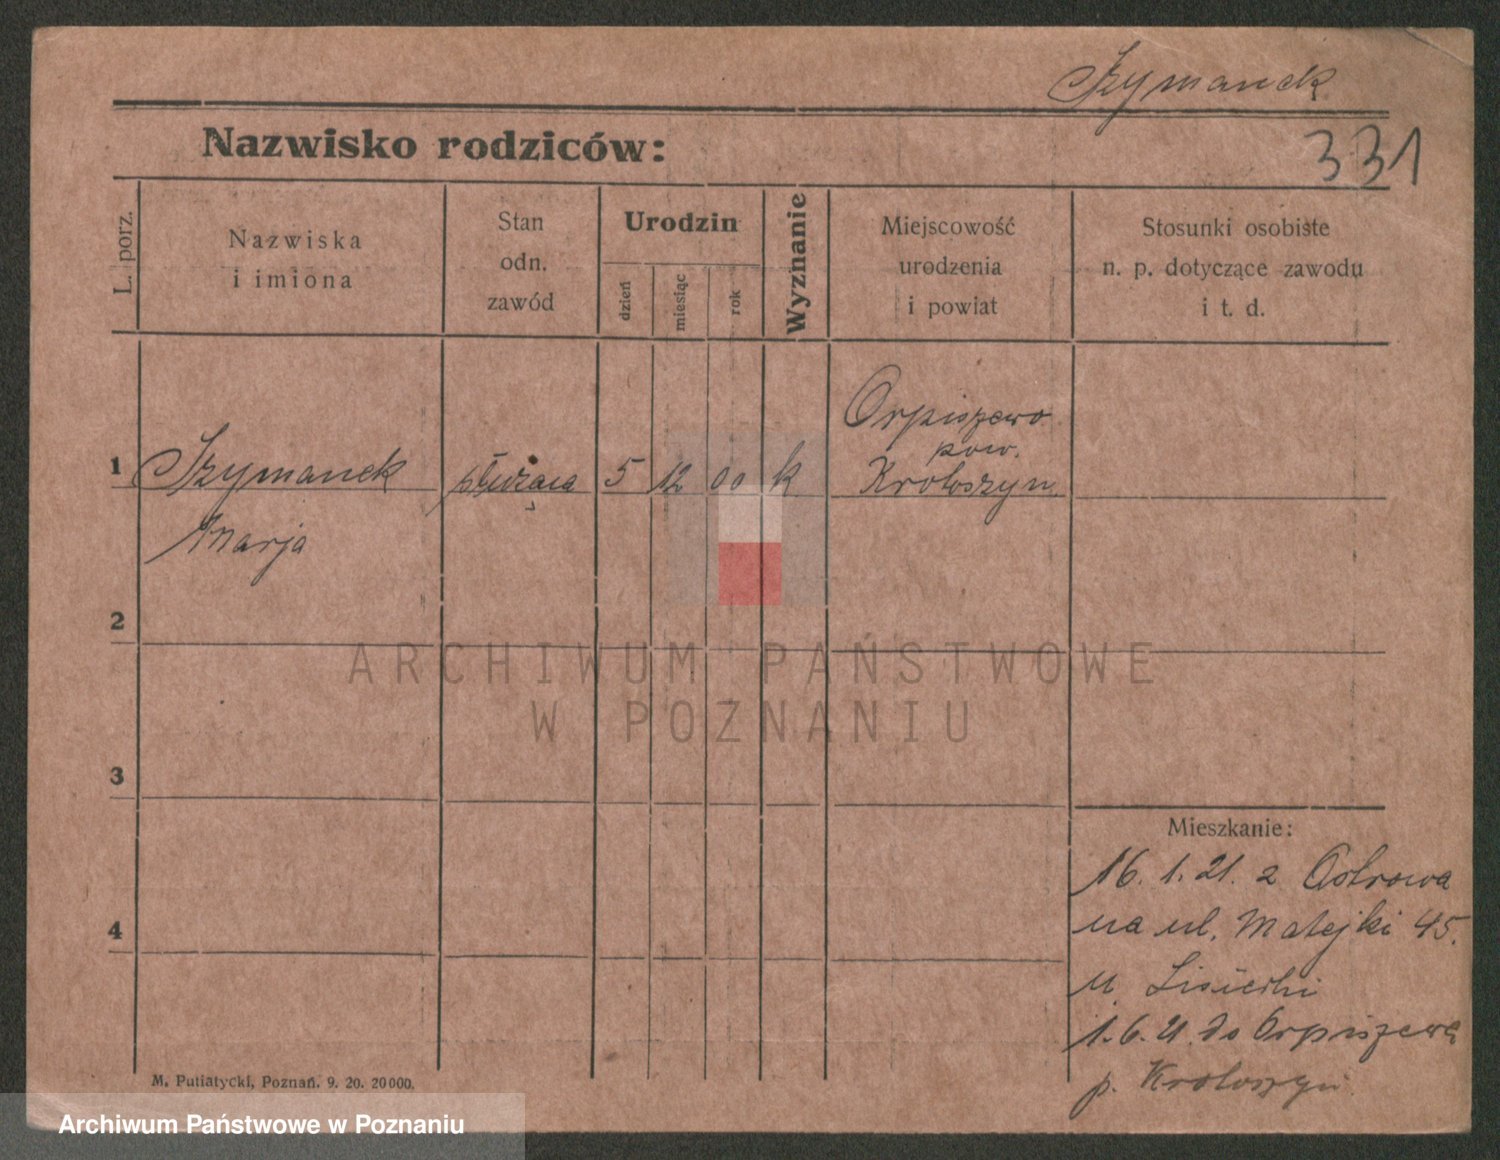 Szymanek
331
Nazwisko rodziców:
L. porz.
Nazwiska
i imiona
Stan
odn.
zawód
Urodzin
dzień
miesiąc
rok
Wyznanie
Miejscowość
urodzenia
i powiat
Stosunki osobiste
n. p. dotyczące zawodu
i t. d.
1
Szymanek
Marja
służąca
5
12
00
k
Orpiszewo
pow.
Krotoszyn
2
3
4
ARCHIWUM PAŃSTWOWE
W POZNANIU
Mieszkanie:
16. 1. 21. z Ostrowa
na ul. Matejki 45.
u
1. 6. 21. do Orpiszewa
p. Krotoszyn
M. Putiatycki, Poznań. 9. 20. 20000.
Archiwum Państwowe w Poznaniu